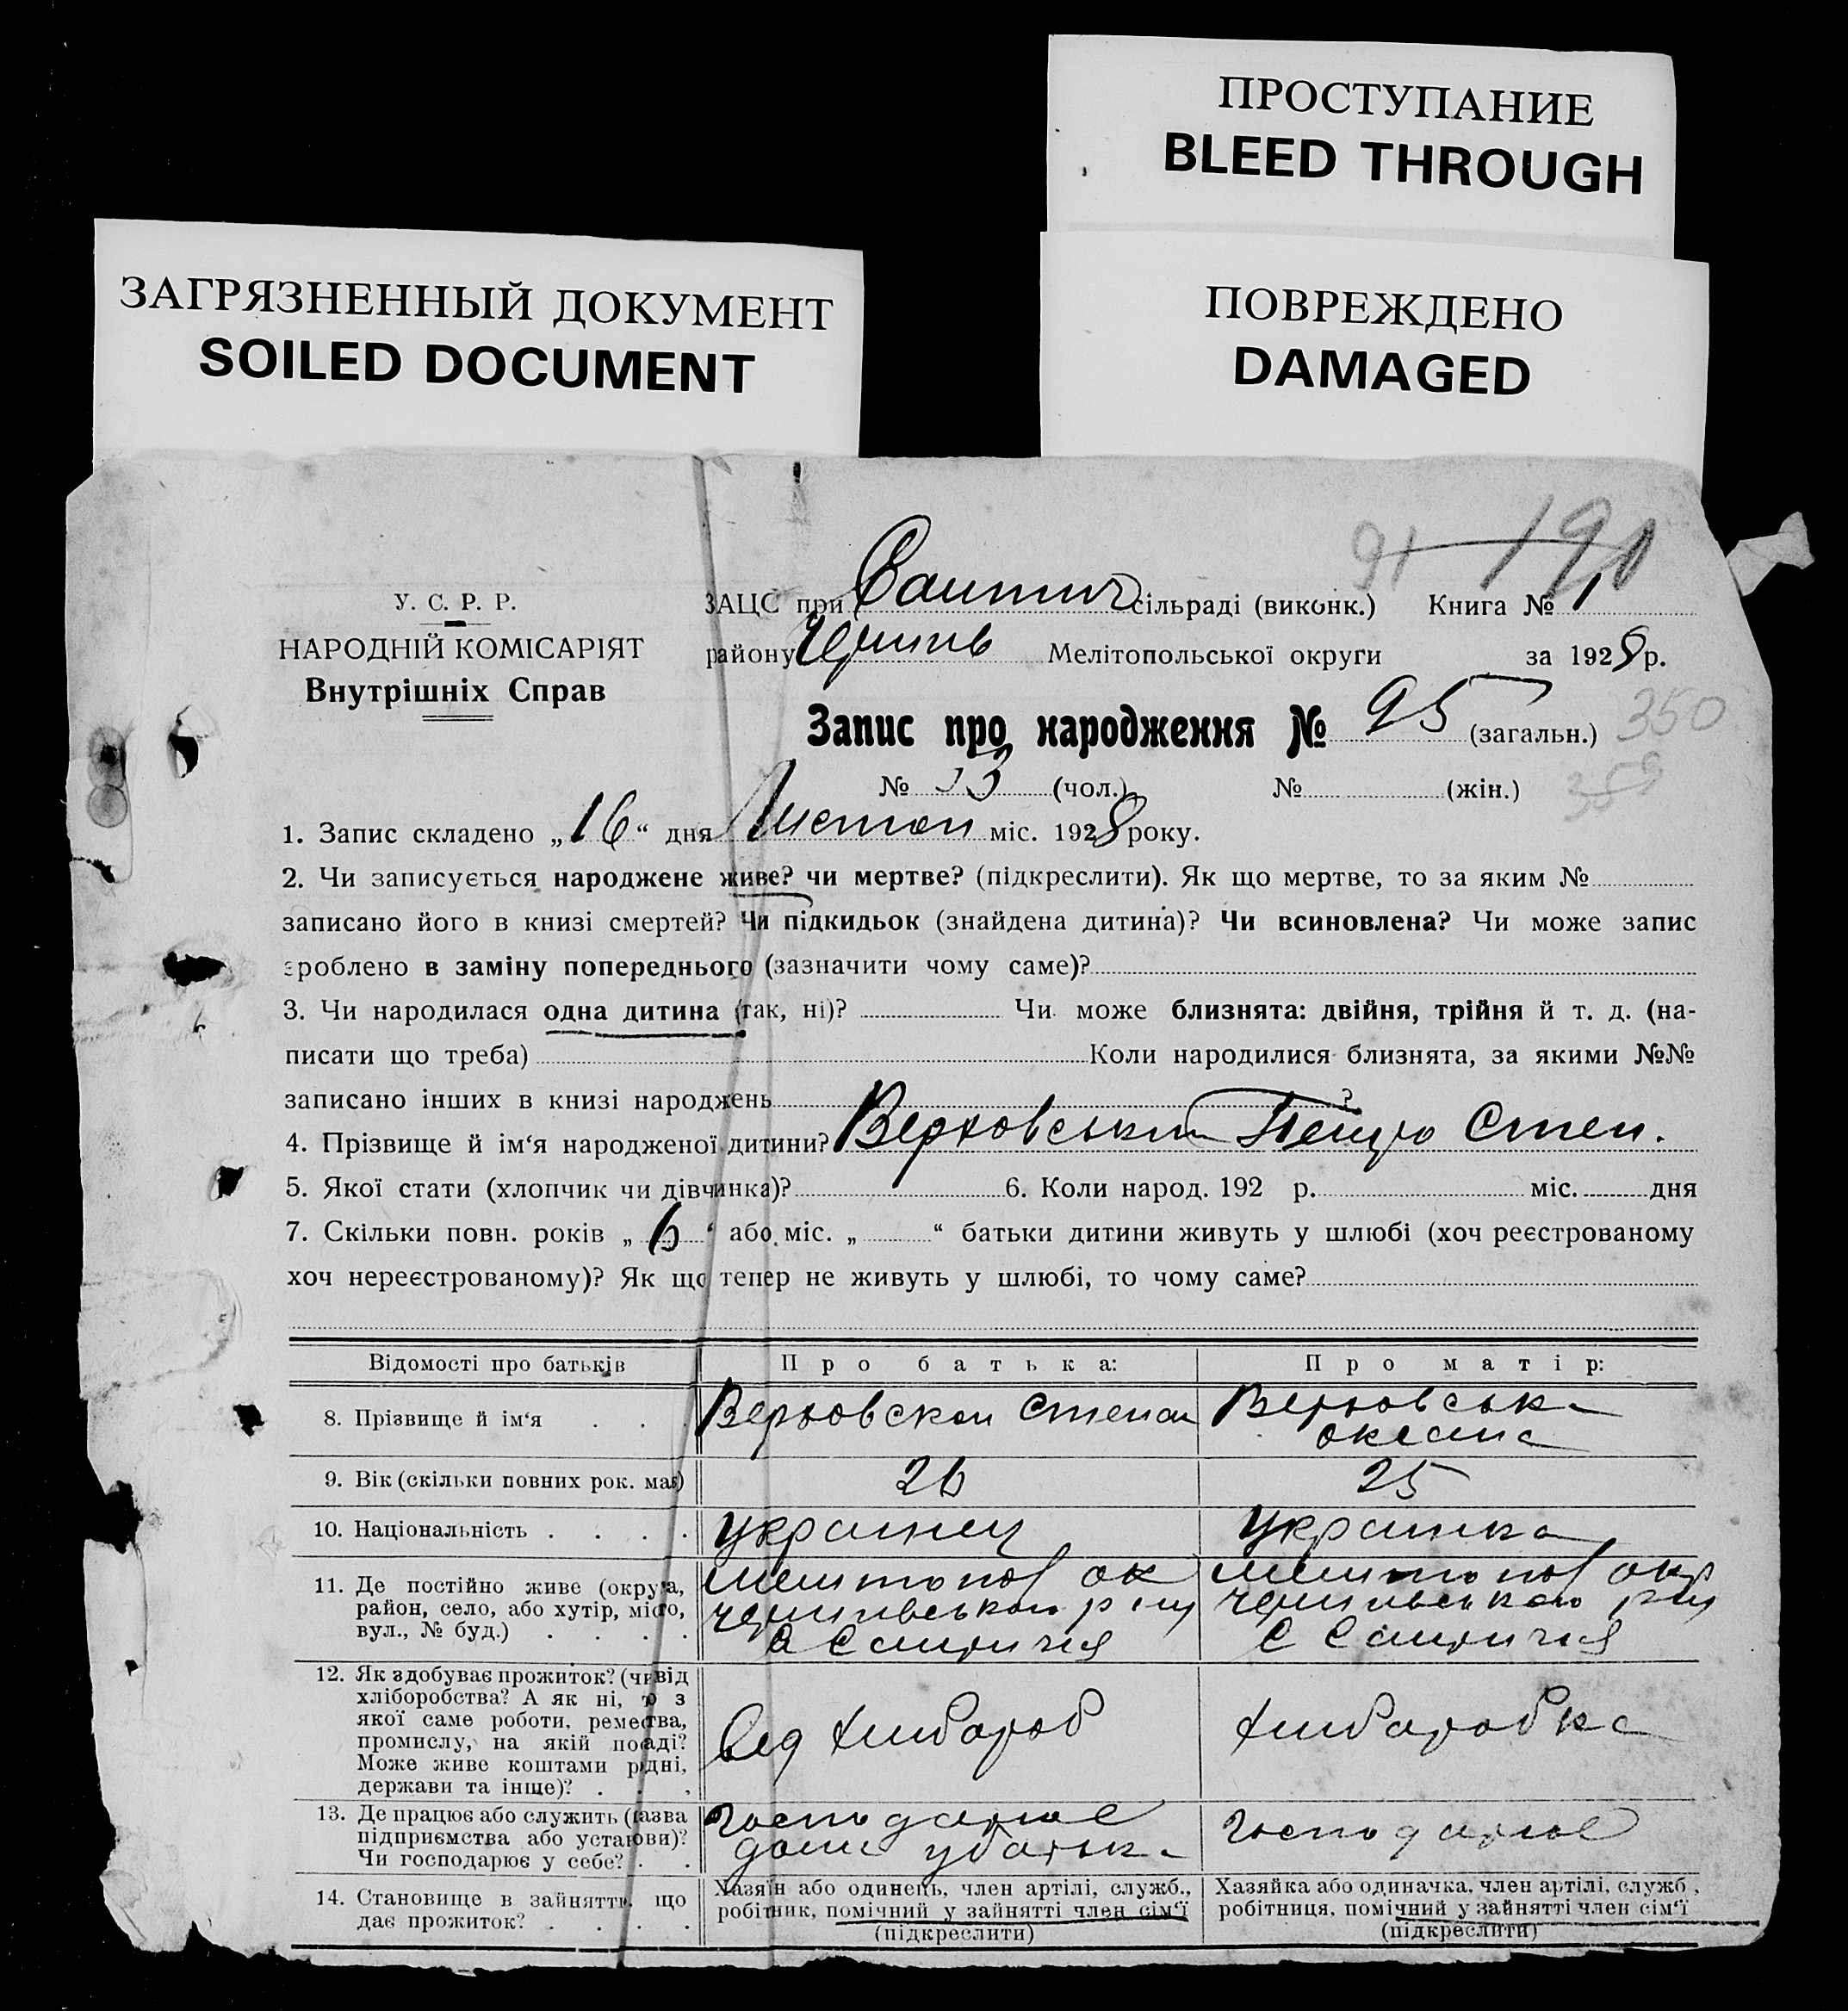 ПРОСТУПАНИЕ
BLEED THROUGH
ЗАГРЯЗНЕННЫЙ ДОКУМЕНТ
SOILED DOCUMENT
ПОВРЕЖДЕНО
DAMAGED
91 190
У. С. Р. Р.
НАРОДНІЙ КОМІСАРІЯТ
Внутрішніх Справ
ЗАЦС при сільраді (виконк.) Книга № 1
району Мелітопольської округи за 1928 р.
Запис про народження № 95 (загальн.) 350
№ 53 (чол.) № (жін.) 359
1. Запис складено „16“ дня Листоп міс. 1928 року.
2. Чи записується народжене живе? чи мертве? (підкреслити). Як що мертве, то за яким №
записано його в книзі смертей? Чи підкидьок (знайдена дитина)? Чи всиновлена? Чи може запис
зроблено в заміну попереднього (зазначити чому саме)?
3. Чи народилася одна дитина (так, ні)? Чи може близнята: двійня, трійня й т. д. (на-
писати що треба) Коли народилися близнята, за якими №№
записано інших в книзі народжень ?
4. Прізвище й ім‘я народженої дитини? Верховський Петро Степ.
5. Якої стати (хлопчик чи дівчинка)? 6. Коли народ. 192 р. міс. дня
7. Скільки повн. років „6“ або міс. „ “ батьки дитини живуть у шлюбі (хоч реєстрованому
хоч нереєстрованому)? Як що тепер не живуть у шлюбі, то чому саме?
Відомості про батьків Про батька: Про матір:
8. Прізвище й ім‘я . . . Верховской Степан Верховська
оксана
9. Вік (скільки повних рок. має) 26 25
10. Національність . . . . украинец украинка
11. Де постійно живе (округа, мелитопол ок мелитопол окр
район, село, або хутір, місто,
вул., № буд.) . . . .
12. Як здобуває прожиток? (чи від
хліборобства? А як ні, то з
якої саме роботи, ремества,
промислу, на якій посаді? Від хлибороб хлиборобка
Може живе коштами рідні,
держави та інще)? . . .
13. Де працює або служить (назва господарює господарює
підприємства або установи)?
Чи господарює у себе? . .
14. Становище в зайнятті, що
дає прожиток? . . . .
Хазяїн або одинець, член артілі, служб.,
робітник, помічний у зайнятті член сім‘ї
(підкреслити)
Хазяйка або одиначка, член артілі, служб.,
робітниця, помічний у зайнятті член сім‘ї
(підкреслити)